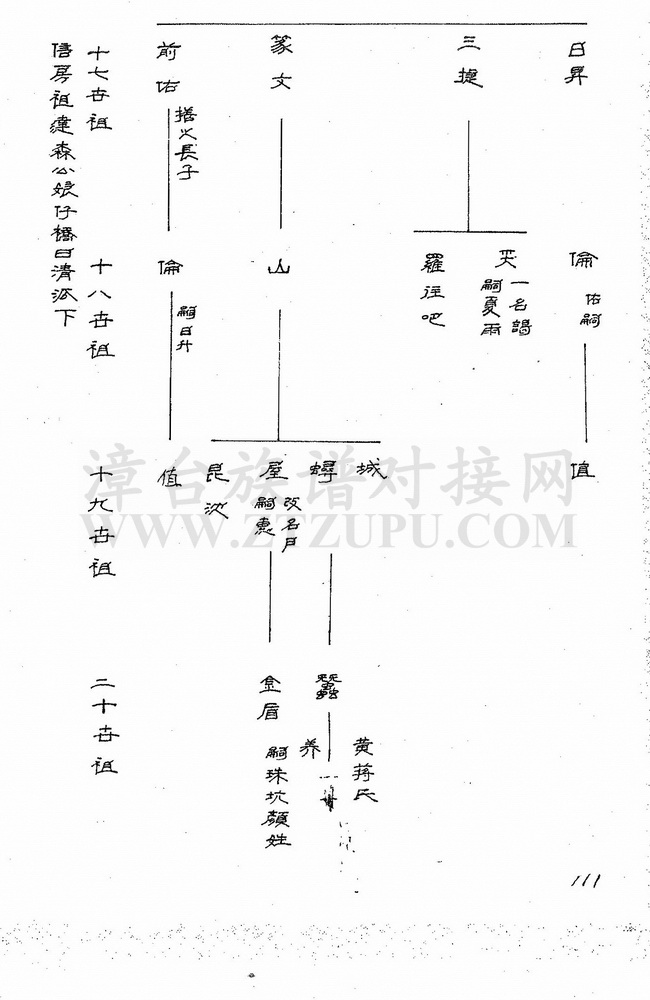 日昇
三提
篆文
前佑
搭火長子
十七世祖
信房祖建森公娘仔橋日清派下
倫
佑嗣
一名謁
嗣夏雨
羅往吧
山
倫
嗣日升
十八世祖
值
城
蟳
屋
改名戶
嗣惠
昆池
值
十九世祖
蠶
金眉
嗣珠坑顏姓
黄蒋氏
养
二十世祖
111
漳台族谱对接网
WWW.ZTZUPU.COM